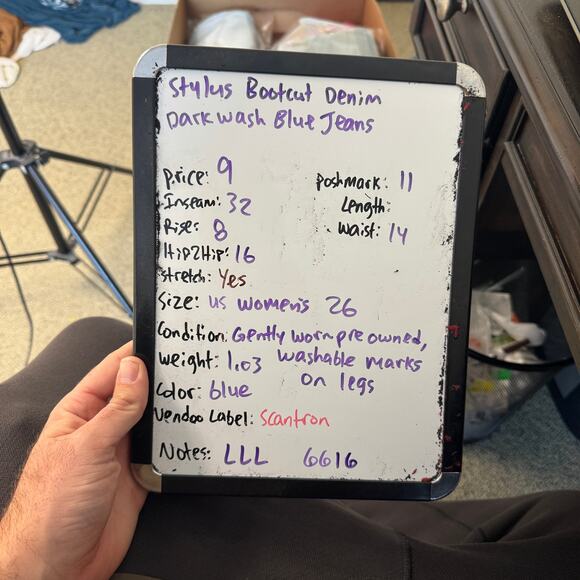 Stylus Bootcut Denim
Dark wash Blue Jeans
Price: 9
Poshmark: 11
Inseam: 32
Length:
Rise: 8
Waist: 14
Hip2Hip: 16
Stretch: Yes
Size: US Women's 26
Condition: Gently worn pre owned,
washable marks
on legs
Weight: 1.03
Color: blue
Vendoo Label: Scantron
Notes: LLL 6616